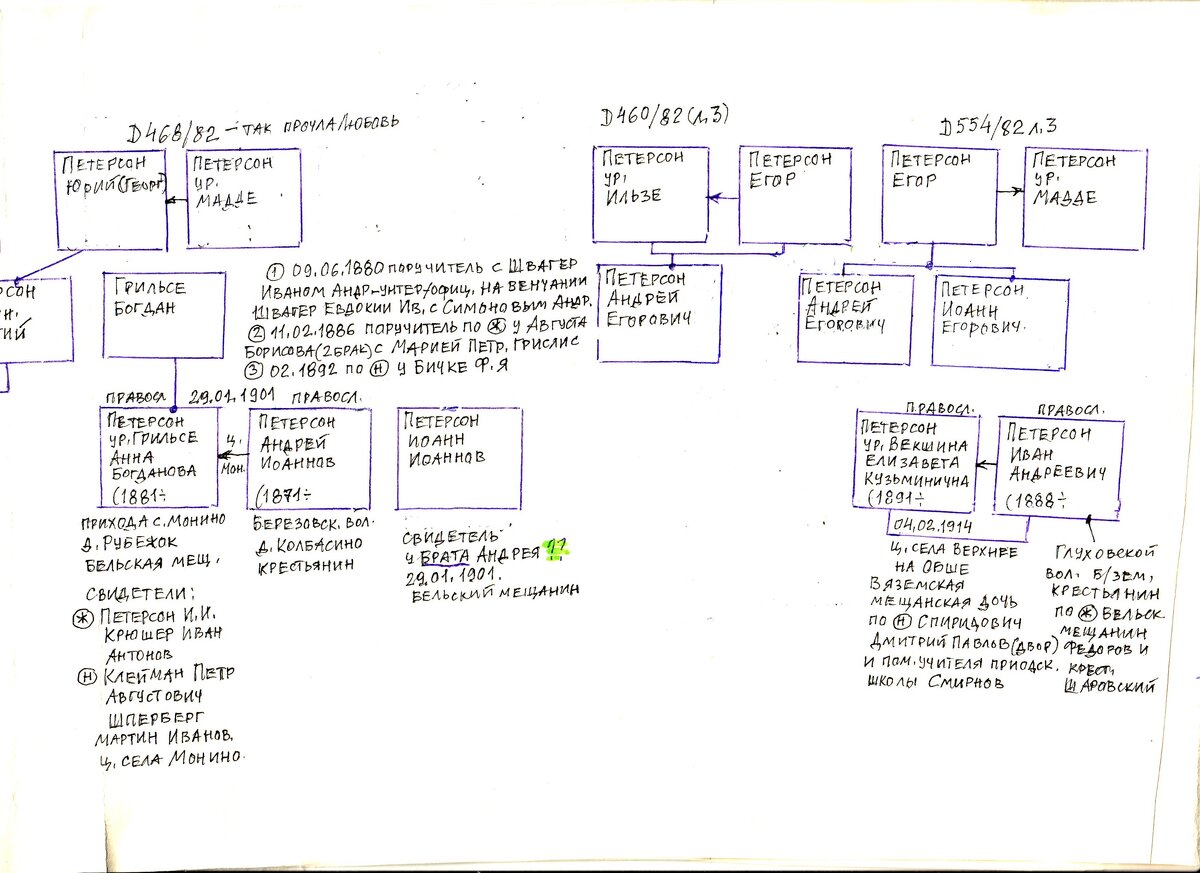 D468/82 – ТАК ПРОЧЛА ЛЮБОВЬ
ПЕТЕРСОН
ЮРИЙ (ГЕОРГ)
ПЕТЕРСОН
УР.
МАДДЕ
D460/82 (л.3)
ПЕТЕРСОН
УР.
ИЛЬЗЕ
ПЕТЕРСОН
ЕГОР
D554/82 л.3
ПЕТЕРСОН
ЕГОР
ПЕТЕРСОН
УР.
МАДДЕ
РСОН
Н.
ГИЙ
ГРИЛЬСЕ
БОГДАН
① 09.06.1880 ПОРУЧИТЕЛЬ С ШВАГЕР
ИВАНОМ АНДР-УНТЕР/ОФИЦ. НА ВЕНЧАНИИ
ШВАГЕР ЕВДОКИИ ИВ. С СИМОНОВЫМ АНДР.
② 11.02.1886 ПОРУЧИТЕЛЬ ПО Ж У АВГУСТА
БОРИСОВА (2БРАК) С МАРИЕЙ ПЕТР. ГРИСЛИС
③ 02.1892 ПО Н У БИЧКЕ Ф.Я
ПЕТЕРСОН
АНДРЕЙ
ЕГОРОВИЧ
ПЕТЕРСОН
АНДРЕЙ
ЕГОРОВИЧ
ПЕТЕРСОН
ИОАНН
ЕГОРОВИЧ.
ПРАВОСЛ 29.01.1901 ПРАВОСЛ.
ПЕТЕРСОН
УР. ГРИЛЬСЕ
АННА
БОГДАНОВА
(1881÷
Ц.
МОН.
ПЕТЕРСОН
АНДРЕЙ
ИОАННОВ
(1871÷
ПЕТЕРСОН
ИОАНН
ИОАННОВ
ПРИХОДА С. МОНИНО
Д. РУБЕЖОК
БЕЛЬСКАЯ МЕЩ.
БЕРЕЗОВСК. ВОЛ.
Д. КОЛБАСИНО
КРЕСТЬЯНИН
СВИДЕТЕЛЬ
У БРАТА АНДРЕЯ ??
29.01.1901.
БЕЛЬСКИЙ МЕЩАНИН
СВИДЕТЕЛИ:
Ж ПЕТЕРСОН И.И.
КРЮШЕР ИВАН
АНТОНОВ
Н КЛЕЙМАН ПЕТР
АВГУСТОВИЧ
ШПЕРБЕРГ
МАРТИН ИВАНОВ.
Ц. СЕЛА МОНИНО.
ПРАВОСЛ. ПРАВОСЛ.
ПЕТЕРСОН
УР. ВЕКШИНА
ЕЛИЗАВЕТА
КУЗЬМИНИЧНА
(1891÷
ПЕТЕРСОН
ИВАН
АНДРЕЕВИЧ
(1888÷
04.02.1914
Ц. СЕЛА ВЕРХНЕЕ
НА ОБШЕ
ВЯЗЕМСКАЯ
МЕЩАНСКАЯ ДОЧЬ
ПО Н СПИРИДОВИЧ
ДМИТРИЙ ПАВЛОВ (ДВОР)
И ПОМ. УЧИТЕЛЯ ПРИОДСК.
ШКОЛЫ СМИРНОВ
ГЛУХОВСКОЙ
ВОЛ. Б/ЗЕМ.
КРЕСТЬЯНИН
ПО Ж БЕЛЬСК.
МЕЩАНИН
ФЕДОРОВ И
КРЕСТ.
ШАРОВСКИЙ